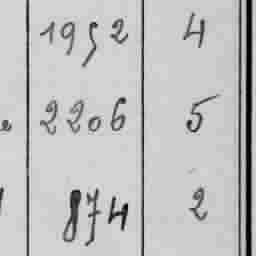 1952 4
2206 5
874 2